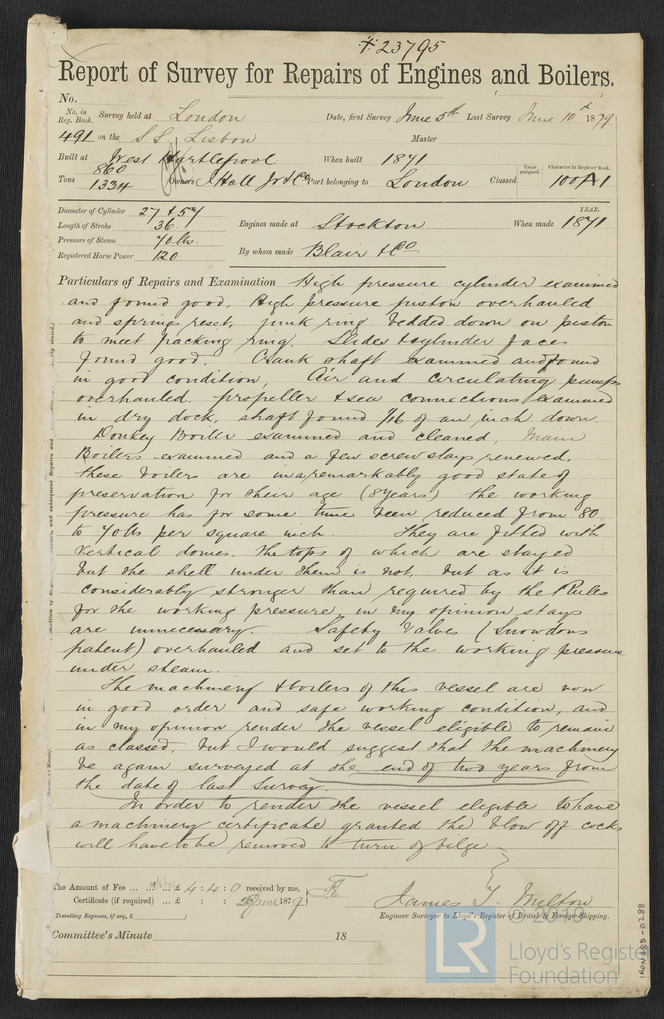 23795
Report of Survey for Repairs of Engines and Boilers.
No.
No. in Reg. Book. Survey held at London Date, first Survey June 5th Last Survey June 10th 1879
491 on the S.S. Lisbon Master
Built at West Hartlepool When built 1871 Years assigned. Character in Register Book.
Tons 860 1334 Owners J Hall Jr & Co Port belonging to London Classed 100A1
Diameter of Cylinder 27 & 54 YEAR.
Length of Stroke 36 Engines made at Stockton When made 1871
Pressure of Steam 70 lbs.
Registered Horse Power 120 By whom made Blair & Co
Particulars of Repairs and Examination High pressure cylinder examined
and found good, High pressure piston overhauled
and springs reset, junk ring bedded down on piston
to meet packing ring. Slides & cylinder faces
found good. Crank shaft examined and found
in good condition, Air and circulating pumps
overhauled. propeller & sea connections examined
in dry dock, shaft found 1/16 of an inch down.
Donkey Boiler examined and cleaned, Main
Boilers examined and a few screw stays renewed,
these boilers are in a remarkably good state of
preservation for their age (8 years) the working
pressure has for some time been reduced from 80
to 70 lbs per square inch. They are fitted with
vertical domes. the tops of which are stayed
but the shell under them is not, but as it is
considerably stronger than required by the Rules
for the working pressure, in my opinion stays
are unnecessary. Safety Valves (Snowdons
patent) overhauled and set to the working pressure
under steam.
The machinery & boilers of this vessel are now
in good order and safe working condition, and
in my opinion render the vessel eligible to remain
as classed, but I would suggest that the machinery
be again surveyed at the end of two years from
the date of last survey.
In order to render the vessel eligible to have
a machinery certificate granted the blow off cocks
will have to be removed to turn of bilge
The Amount of Fee ... £ 4 : 4 : 0 received by me,
Certificate (if required) ... £ : : 1879 James T. Milton
Travelling Expenses, if any, £ Engineer Surveyor to Lloyd's Register of British & Foreign Shipping.
Committee's Minute 18
© 2019
LR Lloyd's Register
Foundation
IRON 185-0288